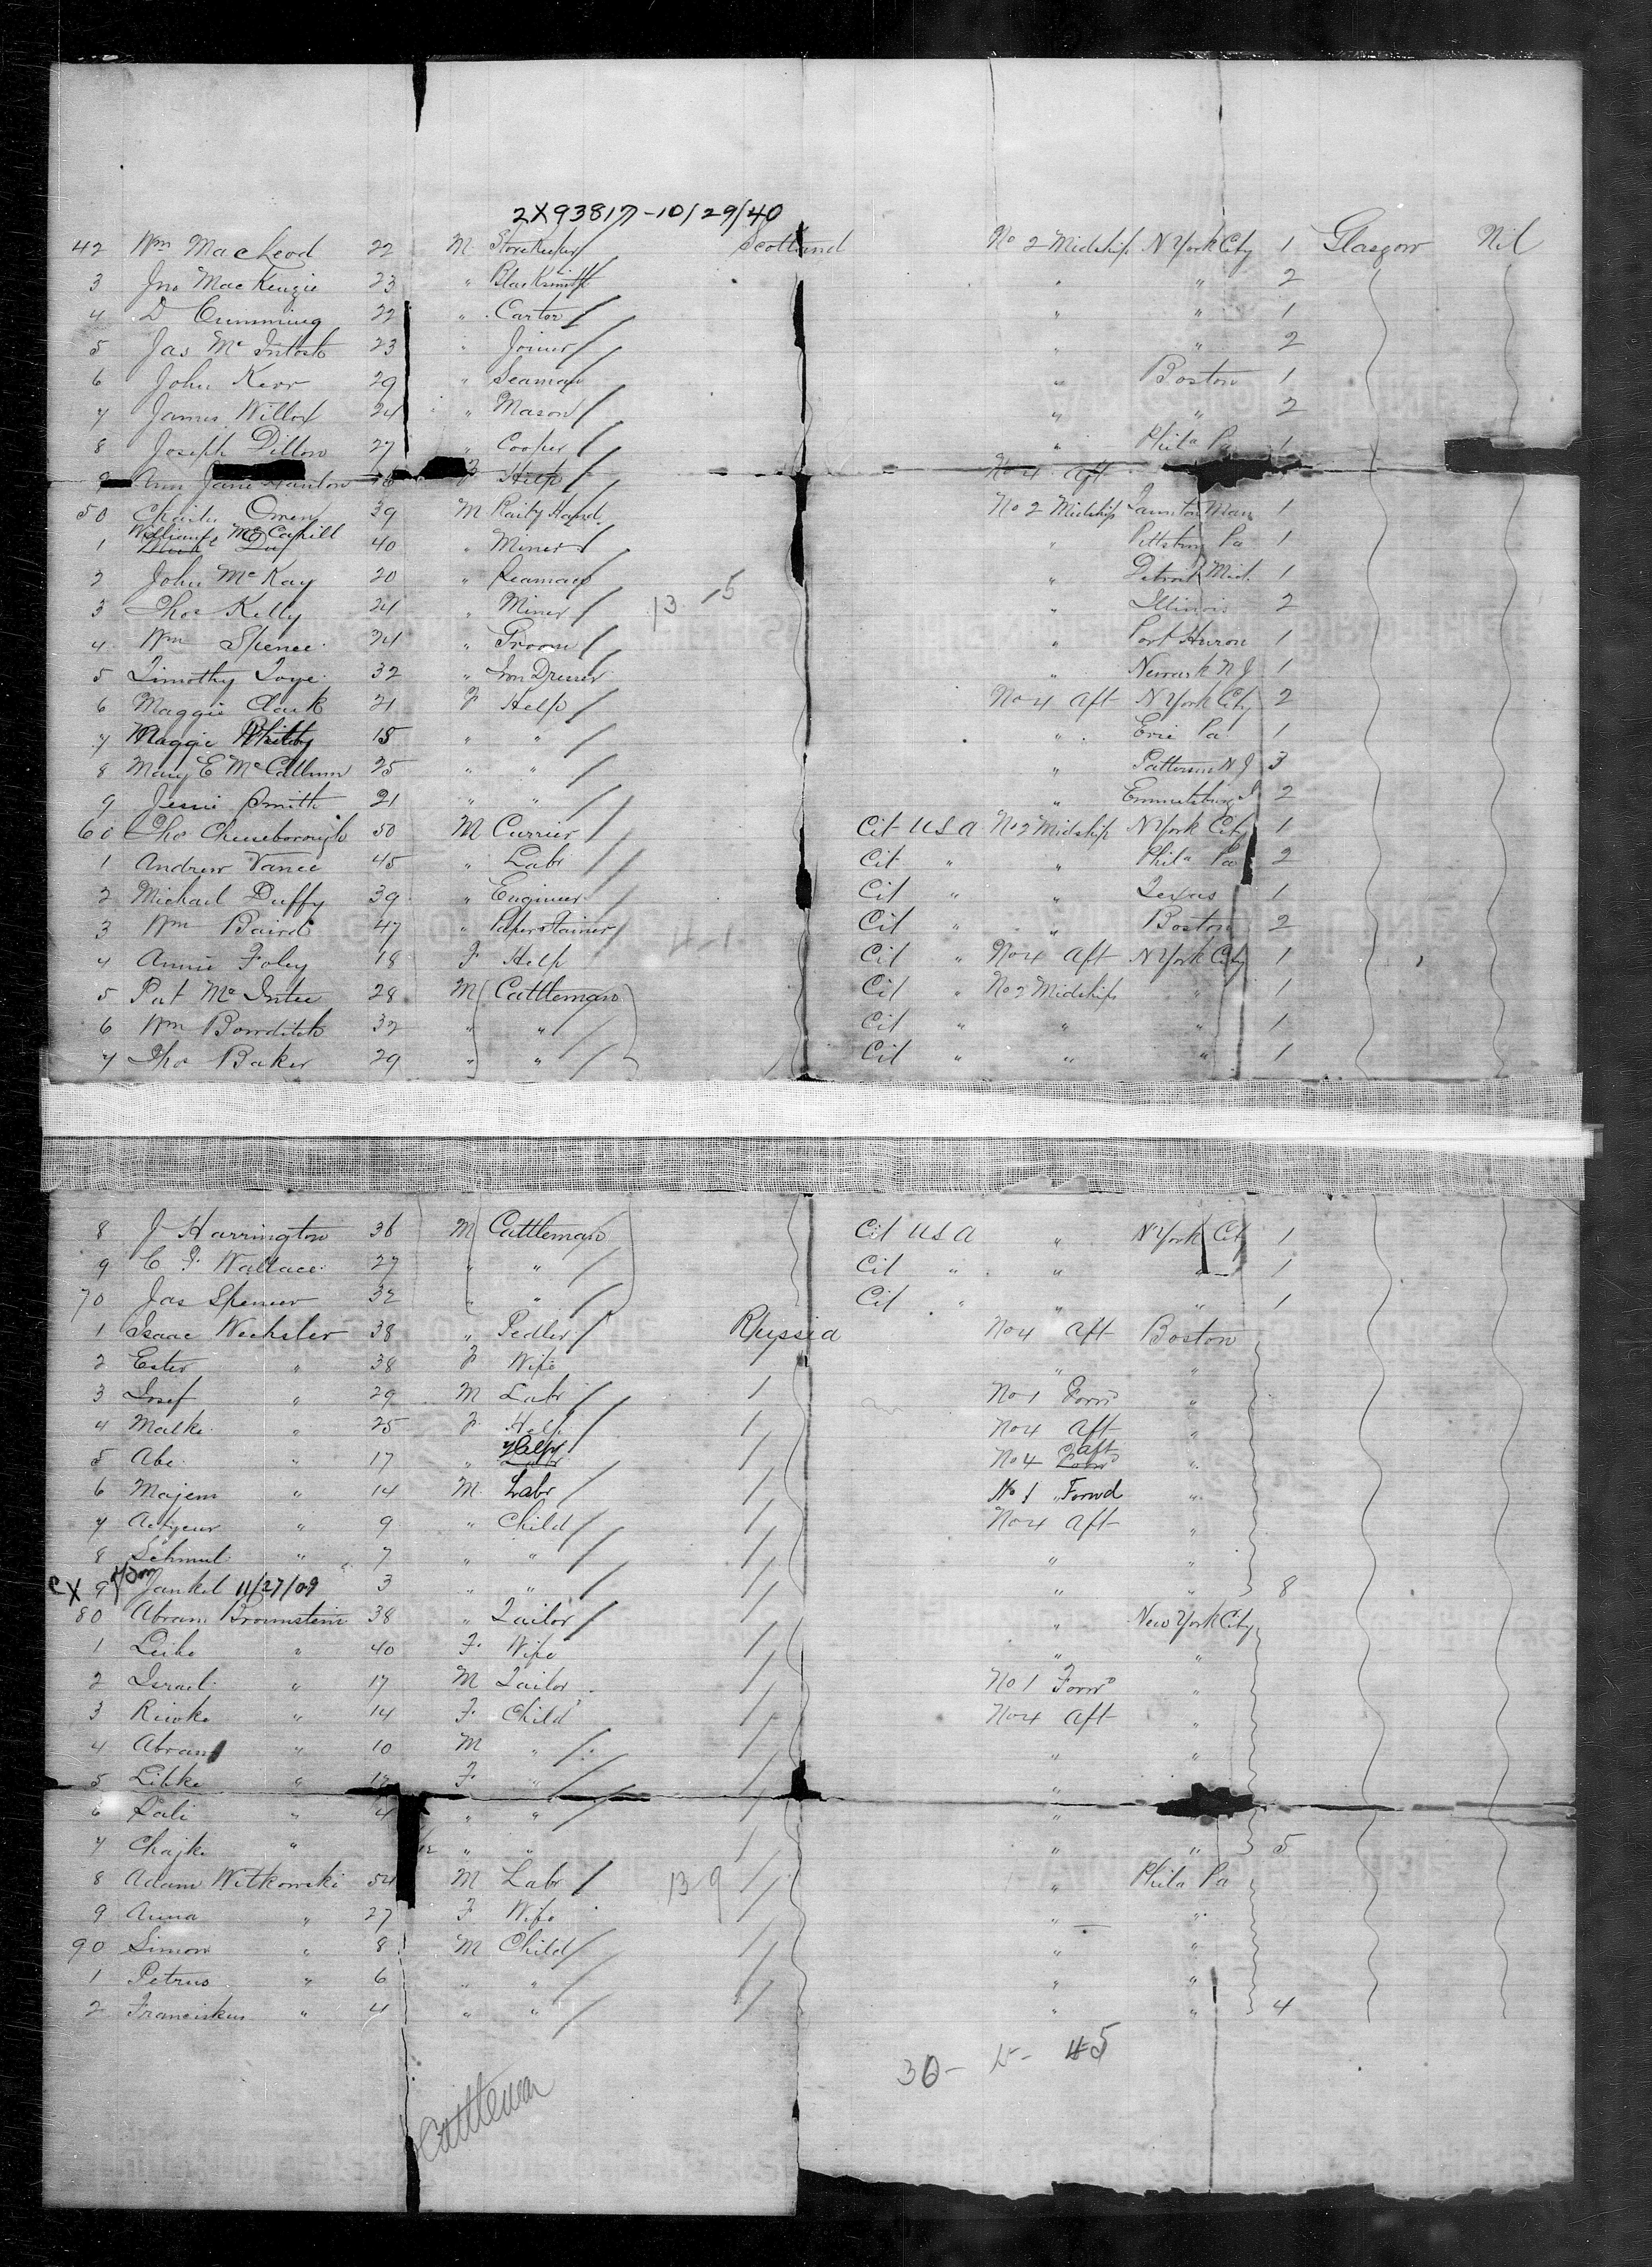 2X93817-10/29/40
42 Wm MacLeod 22 M StoreKeeper Scotland No 2 Midship N York City 1 Glasgow Nil
3 Jno MacKenzie 23 " BlacKsmith " " 2
4 D Cumming 22 " Carter " " 1
5 Jas Mc Intosh 23 " Joiner " " 2
6 John Kerr 29 " Seaman " Boston 1
7 James Willox 24 " Mason " " 2
8 Joseph Dillon 27 " Cooper " Phila Pa 1
9 Ann Jane F Help No 4 Aft
50 Charles Owen 39 M No 2 Midship Taunton Mass 1
William Mc Cahill
1 40 " Miner " Pittsburg Pa 1
2 John McKay 20 " Seaman " Detroit Mich. 1
3 Thos Kelly 24 " Miner 13 15 " Illinois 2
4 Wm Spence 24 " Groom " Port Huron 1
5 Timothy Toye 32 " Iron Dresser " Newark N J 1
6 Maggie Clark 21 F Help No 4 Aft N York City 2
7 Maggie 15 " " " Erie Pa 1
8 Mary E McCallum 25 " " " Patterson N J 3
9 Jessie Smith 21 " " " 2
60 Tho Cheeseborough 50 M Currier Cit USA No 2 Midship N York City 1
1 Andrew Vance 45 " Labr Cit " " Phila Pa 2
2 Michael Duffy 39 " Engineer Cit " " Texas 1
3 Wm Baird 47 " Paperstainer 4-1 Cit " " Boston 2
4 Annie Foley 18 F Help Cit " No 4 Aft N York City 1
5 Pat Mc Intee 28 M Cattleman Cit " No 2 Midship " 1
6 Wm Bowditch 32 " " Cit " " " 1
7 Tho Baker 29 " " Cit " " " 1
8 J Harrington 36 M Cattleman Cit USA " N York City 1
9 C F Wallace 27 " " Cit " " " 1
70 Jas Spencer 32 " " Cit " " " 1
1 Isaac Wechsler 38 " Pedler Russia No 4 Aft Boston
2 Ester " 38 F Wife " "
3 Josef " 29 M Labr No 1 Forwd "
4 Malke " 25 F Help No 4 Aft "
5 Abe " 17 " Help No 4 Aft "
6 Majem " 14 M Labr No 1 Forwd "
7 " 9 " Child No 4 Aft "
8 Schmul " 7 " " " "
CX 9 Jankel 11/27/09 3 " " " " 8
80 Abram Brownstein 38 " Tailor " New York City
1 Leike " 40 F Wife " "
2 Israel " 17 M Tailor No 1 Forwd "
3 Riwke " 14 F Child No 4 Aft "
4 Abram " 10 M " " "
5 Libke " F " "
6 " 4 " " "
7 Chajke " " " " " 5
8 Adam Witkowski 54 M Labr 13 9 " Phila Pa
9 Anna " 27 F Wife " "
90 Simon " 8 M Child " "
1 Petrus " 6 " " " "
2 Franciskus " 4 " " " " 4
30- 45
Cattleman